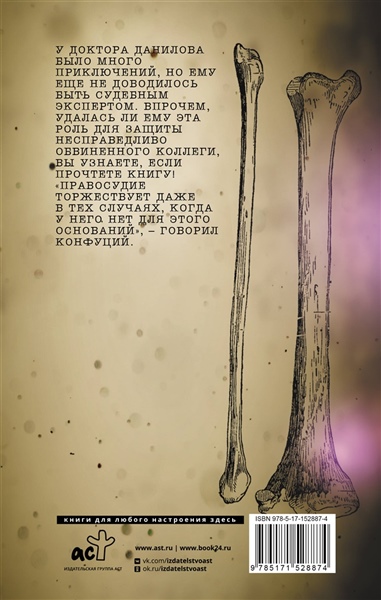 У ДОКТОРА ДАНИЛОВА
БЫЛО МНОГО
ПРИКЛЮЧЕНИЙ, НО ЕМУ
ЕЩЕ НЕ ДОВОДИЛОСЬ
БЫТЬ СУДЕБНЫМ
ЭКСПЕРТОМ. ВПРОЧЕМ,
УДАЛАСЬ ЛИ ЕМУ ЭТА
РОЛЬ ДЛЯ ЗАЩИТЫ
НЕСПРАВЕДЛИВО
ОБВИНЕННОГО КОЛЛЕГИ,
ВЫ УЗНАЕТЕ, ЕСЛИ
ПРОЧТЕТЕ КНИГУ!
«ПРАВОСУДИЕ
ТОРЖЕСТВУЕТ ДАЖЕ
В ТЕХ СЛУЧАЯХ, КОГДА
У НЕГО НЕТ ДЛЯ ЭТОГО
ОСНОВАНИЙ», – ГОВОРИЛ
КОНФУЦИЙ.
книги для любого настроения здесь
аст
ИЗДАТЕЛЬСКАЯ ГРУППА АСТ
www.ast.ru | www.book24.ru
vk.com/izdatelstvoast
ok.ru/izdatelstvoast
ISBN 978-5-17-152887-4
9 785171 528874